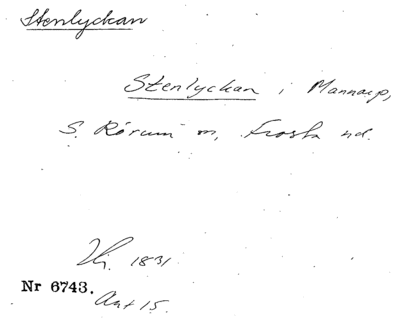 Stenlyckan
Stenlyckan i Mannarp,
S. Rörum sn, Frosta hd.
1831
Nr 6743.
Akt 15.